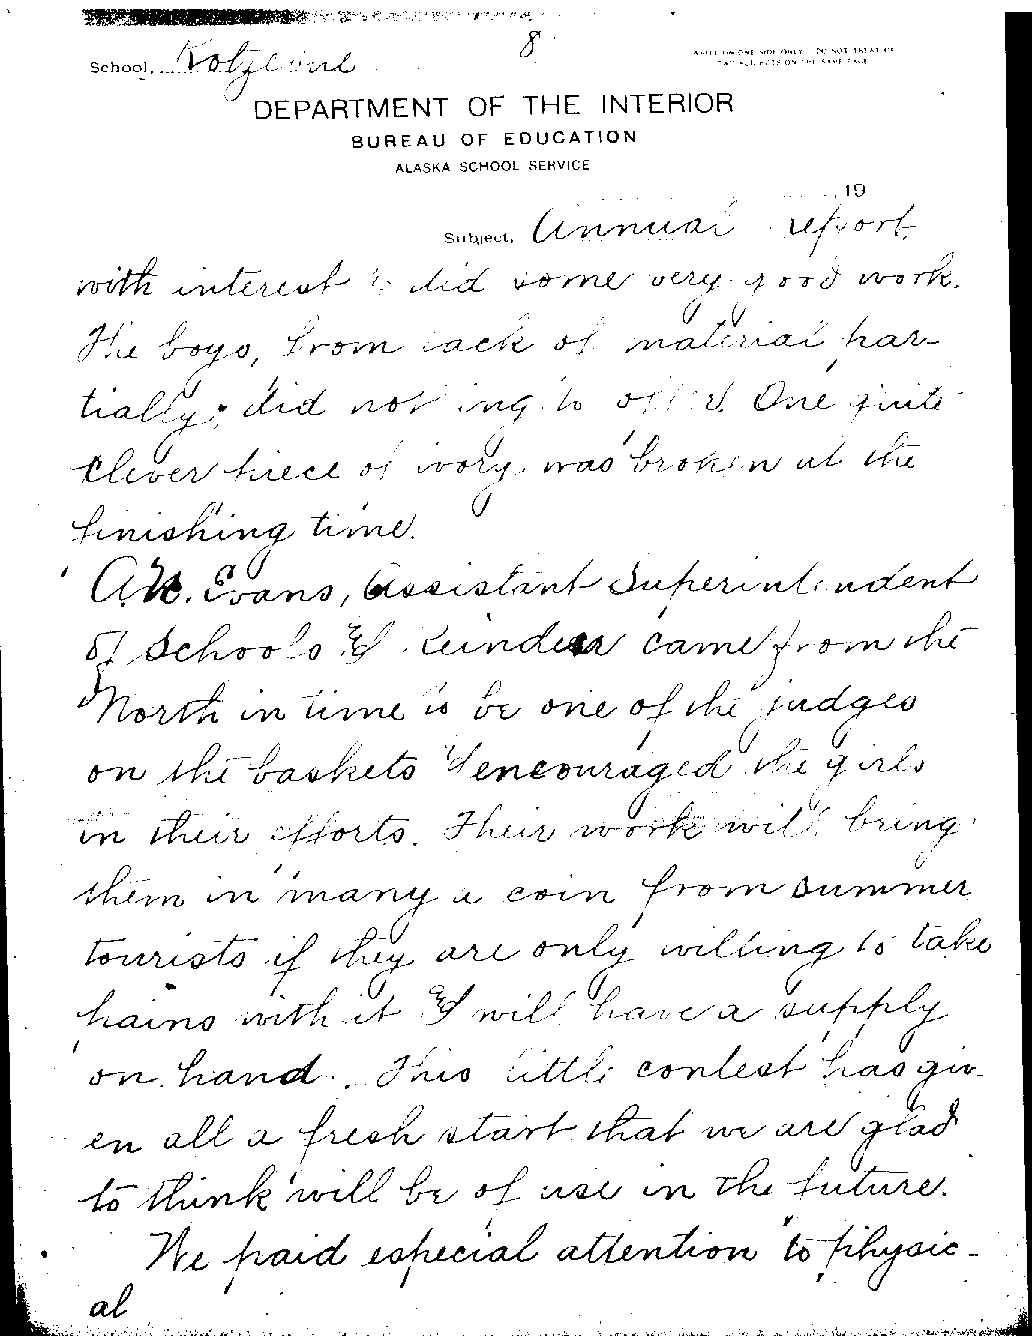 8
School, Kotzebue
WRITE ON ONE SIDE ONLY. DO NOT TREAT OF
TWO SUBJECTS ON THE SAME PAGE
DEPARTMENT OF THE INTERIOR
BUREAU OF EDUCATION
ALASKA SCHOOL SERVICE
, 19
Subject, Annual report.
with interest & did some very good work.
The boys, from lack of material par-
tially, did not to One quite
clever piece of ivory was broken at the
finishing time.
A.N. Evans, Assistant Superintendent
of Schools & Reindeer came from the
North in time to be one of the judges
on the baskets & encouraged the girls
in their efforts. Their work will bring
them in many a coin from summer
tourists if they are only willing to take
pains with it & will have a supply
on hand. This little contest has giv-
en all a fresh start that we are glad
to think will be of use in the future.
We paid especial attention to physic-
al